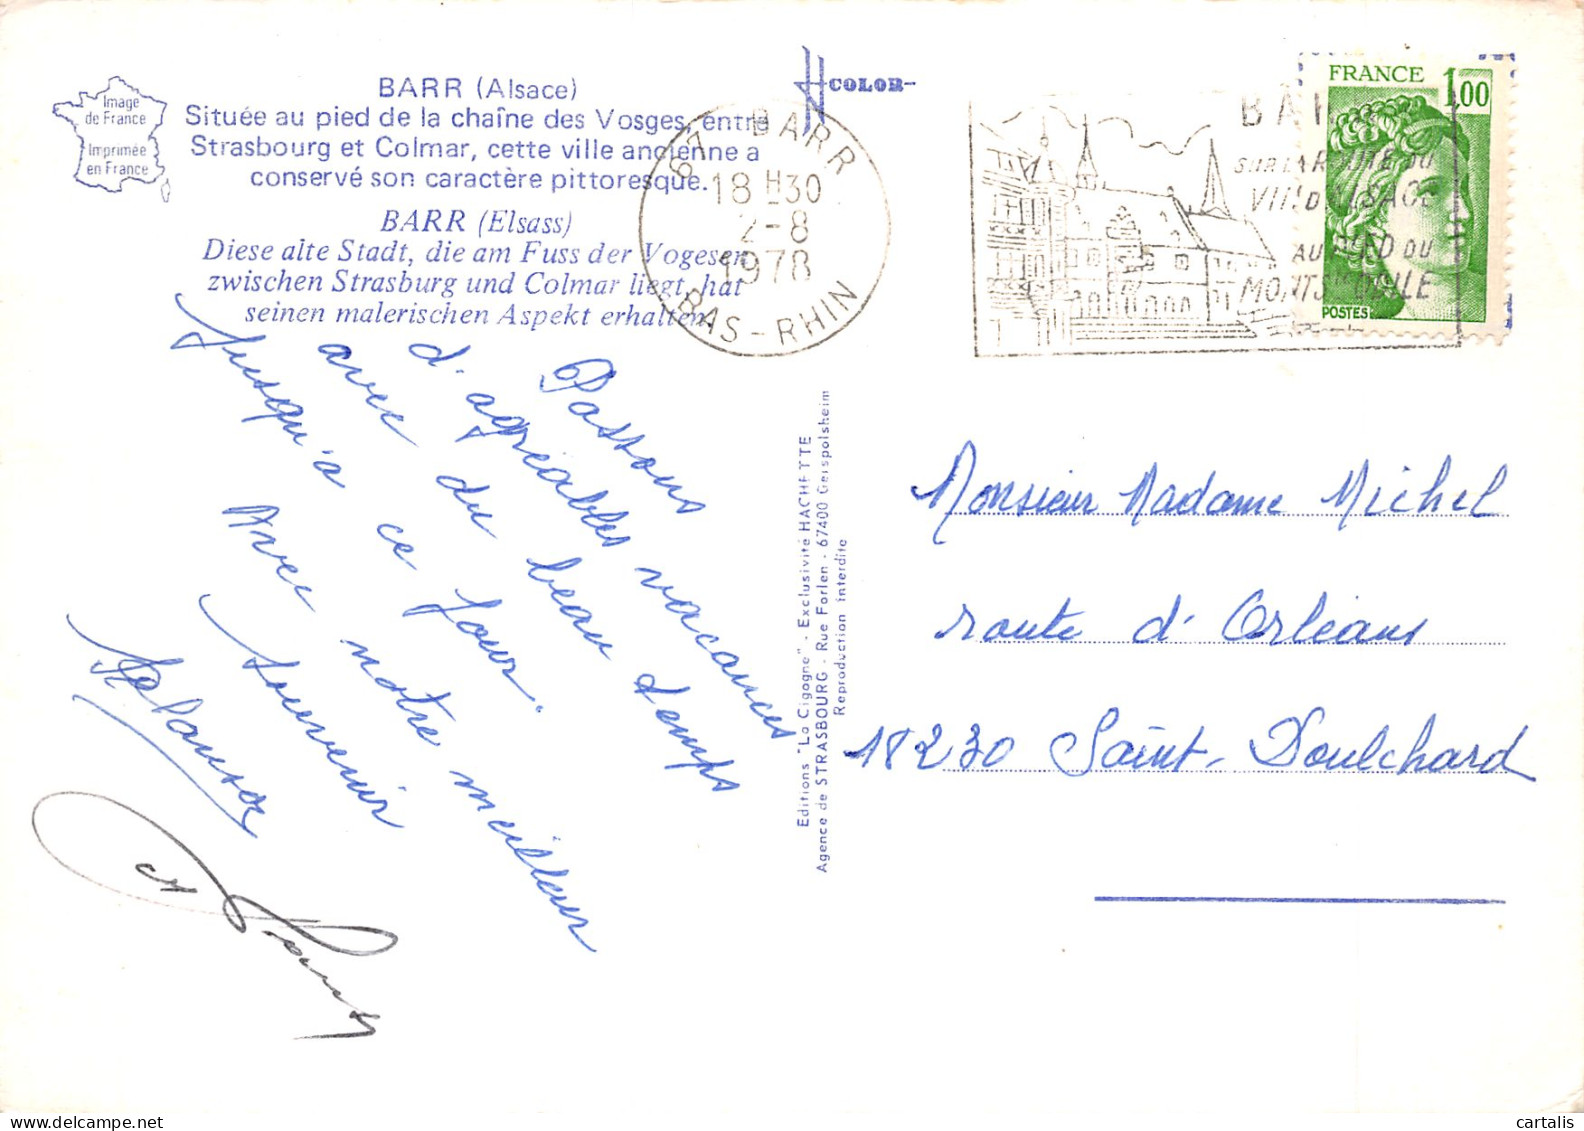 Image
de France
Imprimée
en France
BARR (Alsace)
Située au pied de la chaîne des Vosges, entre
Strasbourg et Colmar, cette ville ancienne a
conservé son caractère pittoresque.
BARR (Elsass)
Diese alte Stadt, die am Fuss der Vogesen
zwischen Strasburg und Colmar liegt, hat
seinen malerischen Aspekt erhalten.
COLOR
67 BARR
18 H 30
2-8
1978
BAS-RHIN
BARR
SUR LA ROUTE DU
VIN D'ALSACE
AU PIED DU
MONT STE ODILE
FRANCE 1,00
POSTES
Passons
d'agréables vacances
avec du beau temps
jusqu'a ce jour.
Avec notre meilleur
souvenir
Editions "La Cigogne" - Exclusivité HACHETTE
Agence de STRASBOURG - Rue Forlen - 67400 Geispolsheim
Reproduction interdite
Monsieur Madame Michel
route d'Orléans
18230 Saint-Doulchard
cartalis